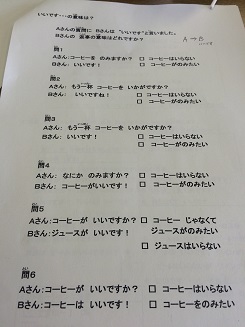 いいです…の意味は?
Aさんの質問に Bさんは "いいです"と言いました。
Bさんの 返事の意味はどれですか?
A → B
いいです
問1
Aさん:コーヒーを のみますか? □ コーヒーはいらない
Bさん:いいです! □ コーヒーがのみたい
問2
Aさん:もう一杯 コーヒーを いかがですか?
Bさん:いいですね! □ コーヒーはいらない
□ コーヒーがのみたい
問3
Aさん:もう一杯 コーヒーを いかがですか?
Bさん:いいです! □ コーヒーはいらない
□ コーヒーがのみたい
問4
Aさん:なにか のみますか? □ コーヒーはいらない
Bさん:コーヒーがいいです! □ コーヒーがのみたい
問5
Aさん:コーヒーが いいですか? □ コーヒー じゃなくて
Bさん:ジュースが いいです! ジュースがのみたい
□ ジュースはいらない
問6
Aさん:コーヒーが いいですか? □ コーヒーはいらない
Bさん:コーヒーは いいです! □ コーヒーをのみたい